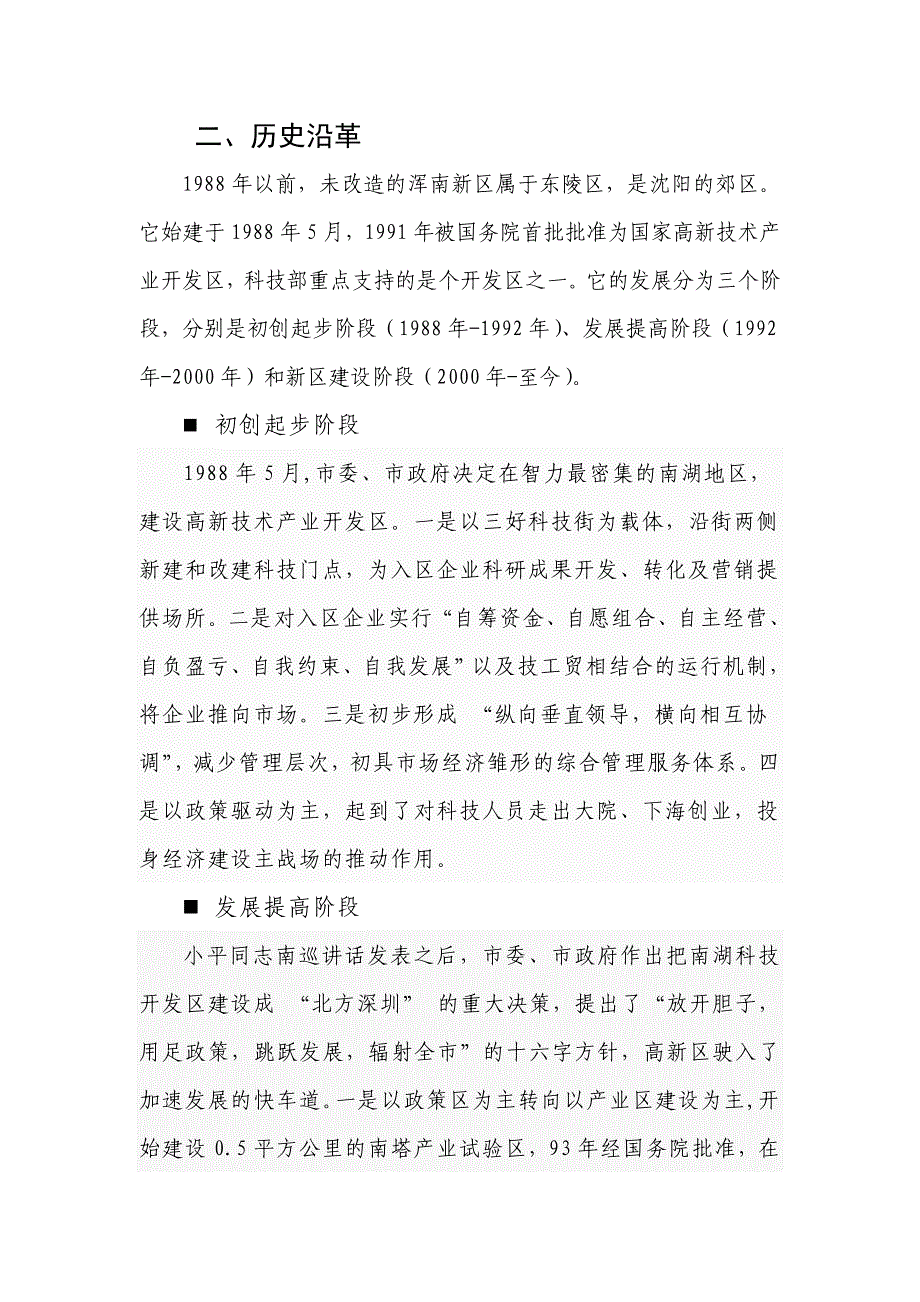 二、历史沿革
1988 年以前，未改造的浑南新区属于东陵区，是沈阳的郊区。
它始建于 1988 年 5 月，1991 年被国务院首批批准为国家高新技术产
业开发区，科技部重点支持的是个开发区之一。它的发展分为三个阶
段，分别是初创起步阶段（1988 年-1992 年）、发展提高阶段（1992
年-2000 年）和新区建设阶段（2000 年-至今）。
■ 初创起步阶段
1988 年 5 月,市委、市政府决定在智力最密集的南湖地区，
建设高新技术产业开发区。一是以三好科技街为载体，沿街两侧
新建和改建科技门点，为入区企业科研成果开发、转化及营销提
供场所。二是对入区企业实行“自筹资金、自愿组合、自主经营、
自负盈亏、自我约束、自我发展”以及技工贸相结合的运行机制，
将企业推向市场。三是初步形成 “纵向垂直领导，横向相互协
调”，减少管理层次，初具市场经济雏形的综合管理服务体系。四
是以政策驱动为主，起到了对科技人员走出大院、下海创业，投
身经济建设主战场的推动作用。
■ 发展提高阶段
小平同志南巡讲话发表之后，市委、市政府作出把南湖科技
开发区建设成 “北方深圳” 的重大决策，提出了“放开胆子，
用足政策，跳跃发展，辐射全市”的十六字方针，高新区驶入了
加速发展的快车道。一是以政策区为主转向以产业区建设为主,开
始建设 0.5 平方公里的南塔产业试验区，93 年经国务院批准，在